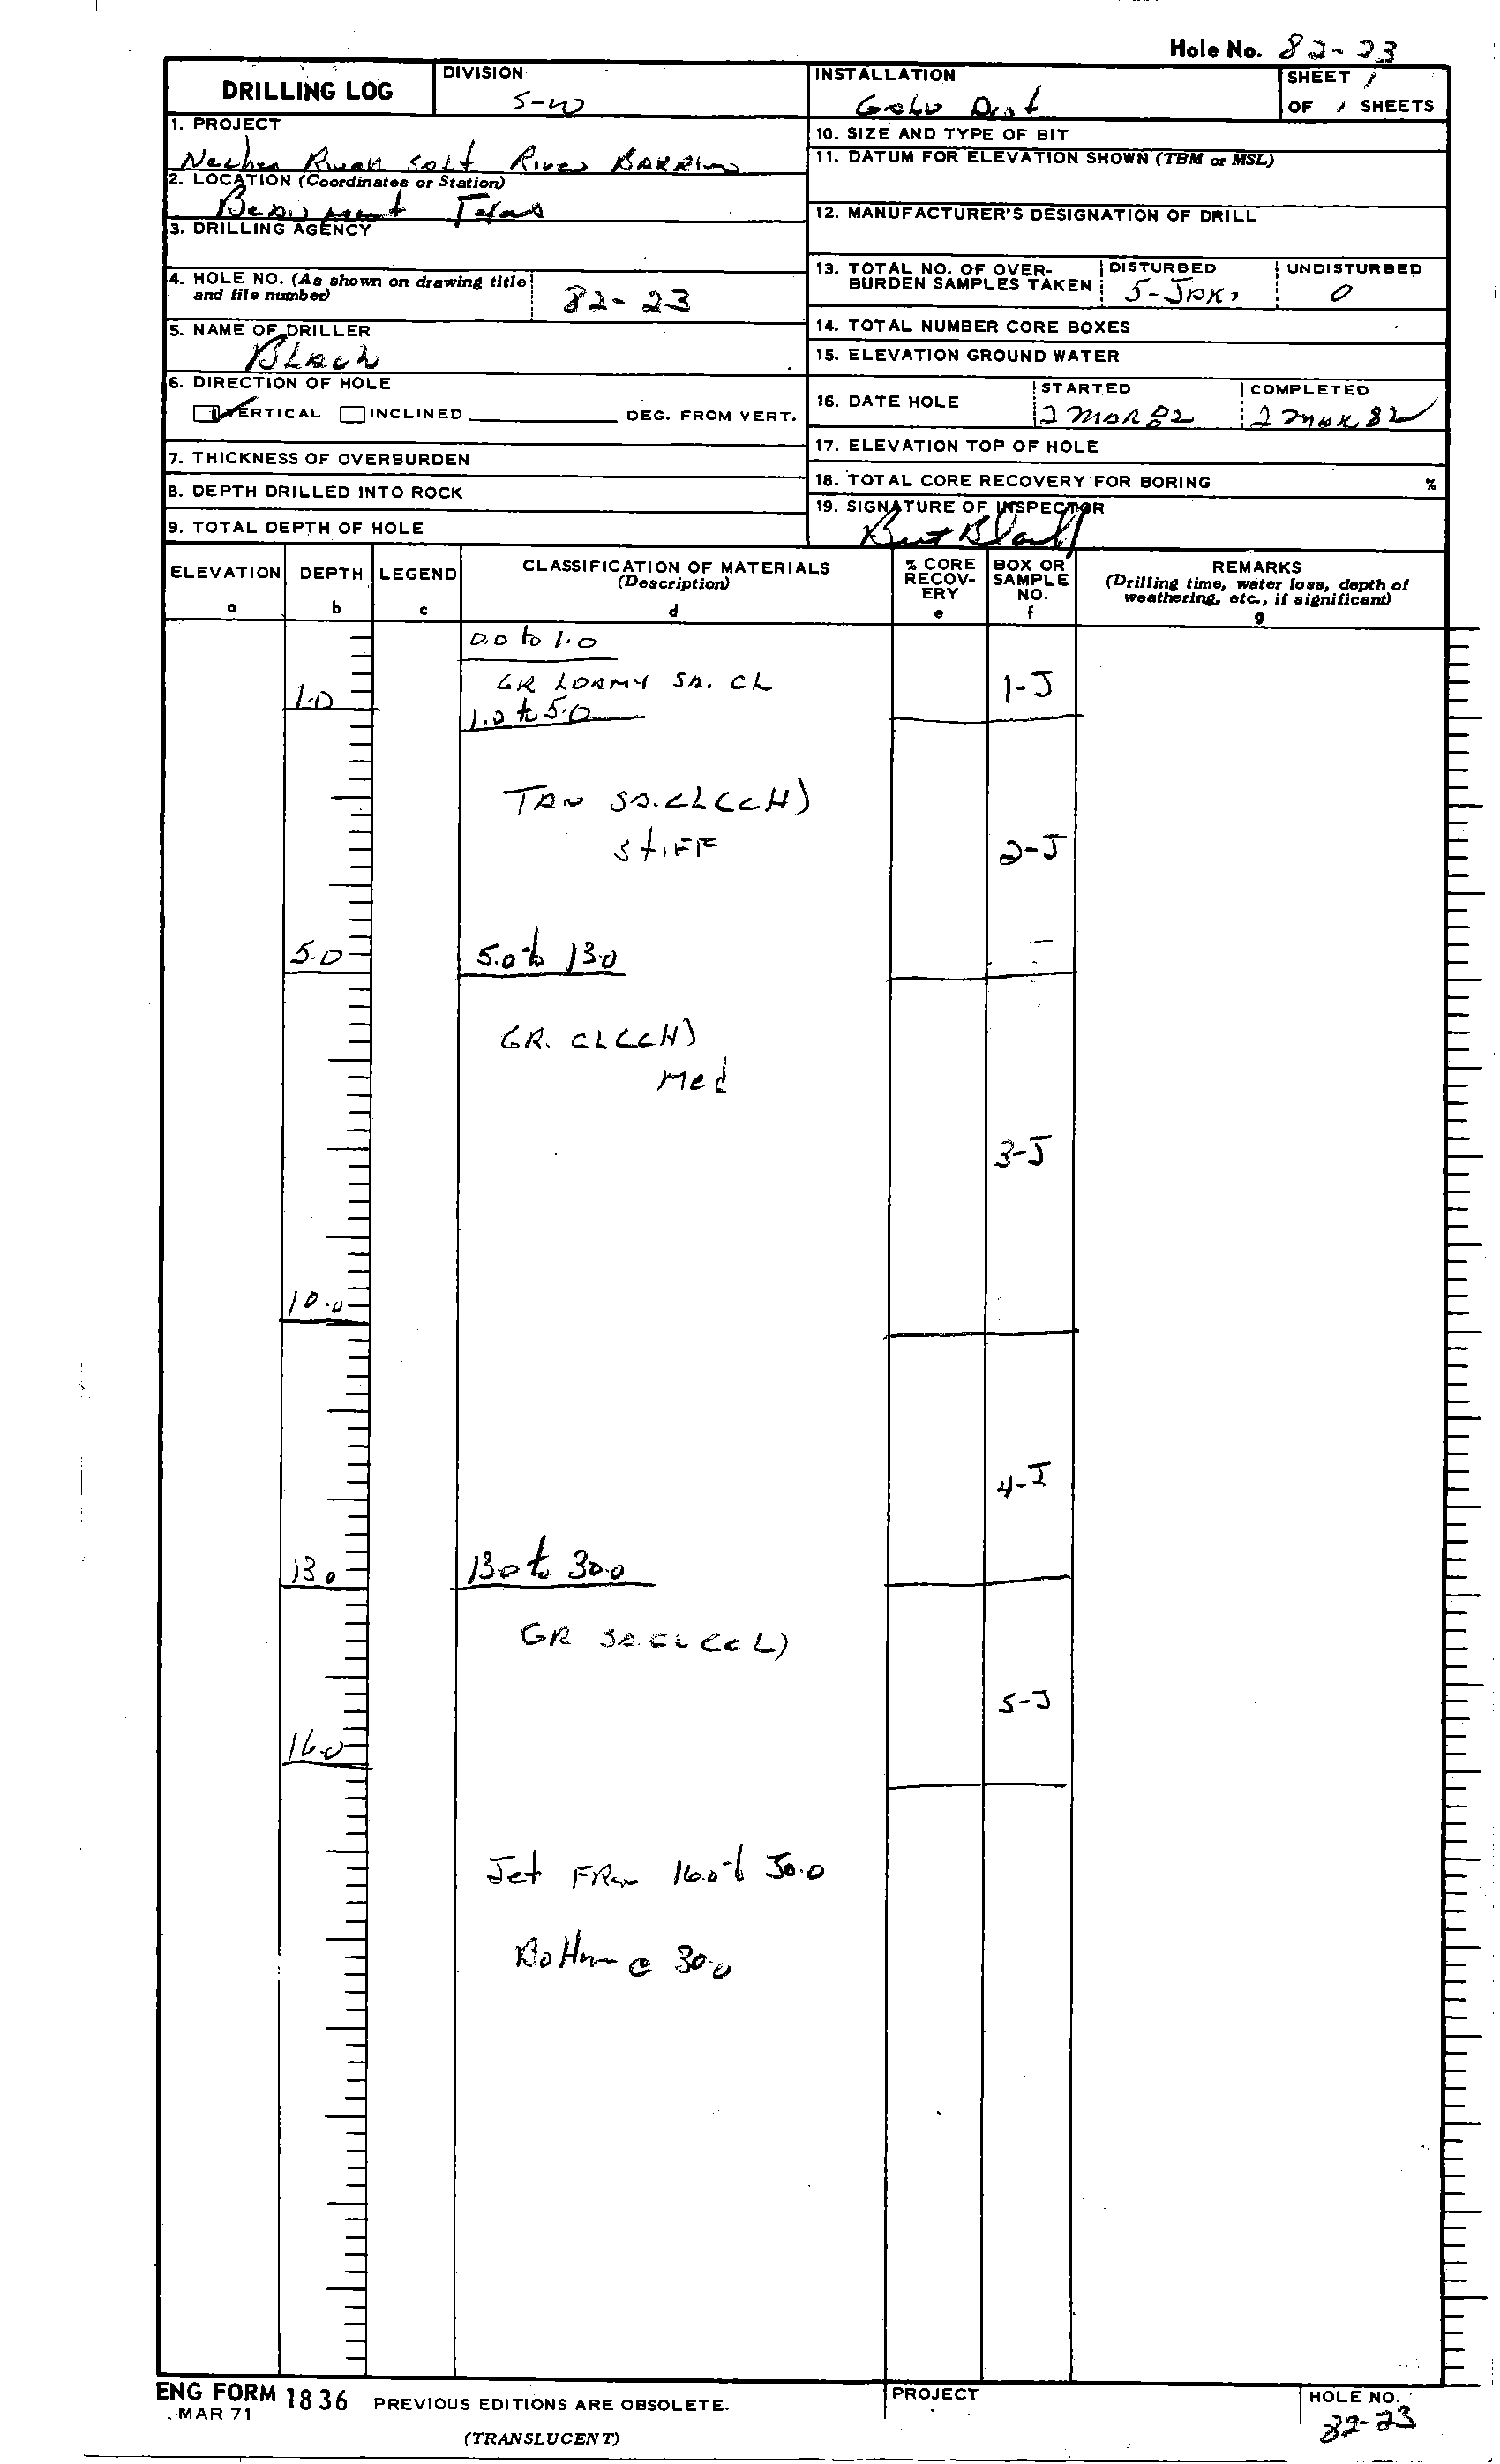 Hole No. 82-23
DRILLING LOG
DIVISION
S-W
INSTALLATION
Galv Dist
SHEET 1
OF 1 SHEETS
1. PROJECT
Neches River Salt River BARRIER
2. LOCATION (Coordinates or Station)
Beaumont Texas
3. DRILLING AGENCY
4. HOLE NO. (As shown on drawing title
and file number)
82-23
5. NAME OF DRILLER
BLACK
6. DIRECTION OF HOLE
VERTICAL INCLINED DEG. FROM VERT.
7. THICKNESS OF OVERBURDEN
8. DEPTH DRILLED INTO ROCK
9. TOTAL DEPTH OF HOLE
10. SIZE AND TYPE OF BIT
11. DATUM FOR ELEVATION SHOWN (TBM or MSL)
12. MANUFACTURER'S DESIGNATION OF DRILL
13. TOTAL NO. OF OVER-
BURDEN SAMPLES TAKEN
DISTURBED
5-JARS
UNDISTURBED
0
14. TOTAL NUMBER CORE BOXES
15. ELEVATION GROUND WATER
16. DATE HOLE
STARTED
2 MAR 82
COMPLETED
2 MAR 82
17. ELEVATION TOP OF HOLE
18. TOTAL CORE RECOVERY FOR BORING %
19. SIGNATURE OF INSPECTOR
ELEVATION
a
DEPTH
b
LEGEND
c
CLASSIFICATION OF MATERIALS
(Description)
d
% CORE
RECOV-
ERY
e
BOX OR
SAMPLE
NO.
f
REMARKS
(Drilling time, water loss, depth of
weathering, etc., if significant)
g
0.0 to 1.0
GR LOAMY SA. CL
1-J
1.0
1.0 to 5.0
TAN SA. CL (CH)
STIFF
2-J
5.0
5.0 to 13.0
GR. CL (CH)
Med
3-J
10.0
4-J
13.0
13.0 to 30.0
GR SA. CL (CL)
5-J
16.0
Jet FROM 16.0 to 30.0
Bottom @ 30.0
ENG FORM 1836
MAR 71
PREVIOUS EDITIONS ARE OBSOLETE.
(TRANSLUCENT)
PROJECT
HOLE NO.
82-23